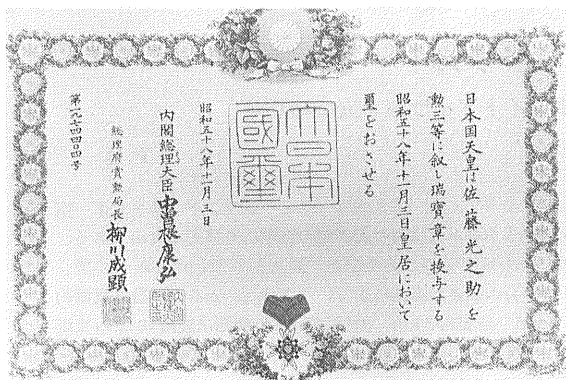 日本国天皇は佐藤光之助を
勲三等に叙し瑞寶章を授与する
昭和五十八年十一月三日皇居において
璽をおさせる
大日本國璽
昭和五十八年十一月三日
内閣総理大臣 中曽根康弘
総理府賞勲局長 柳川成顕
第一九七四四〇四号